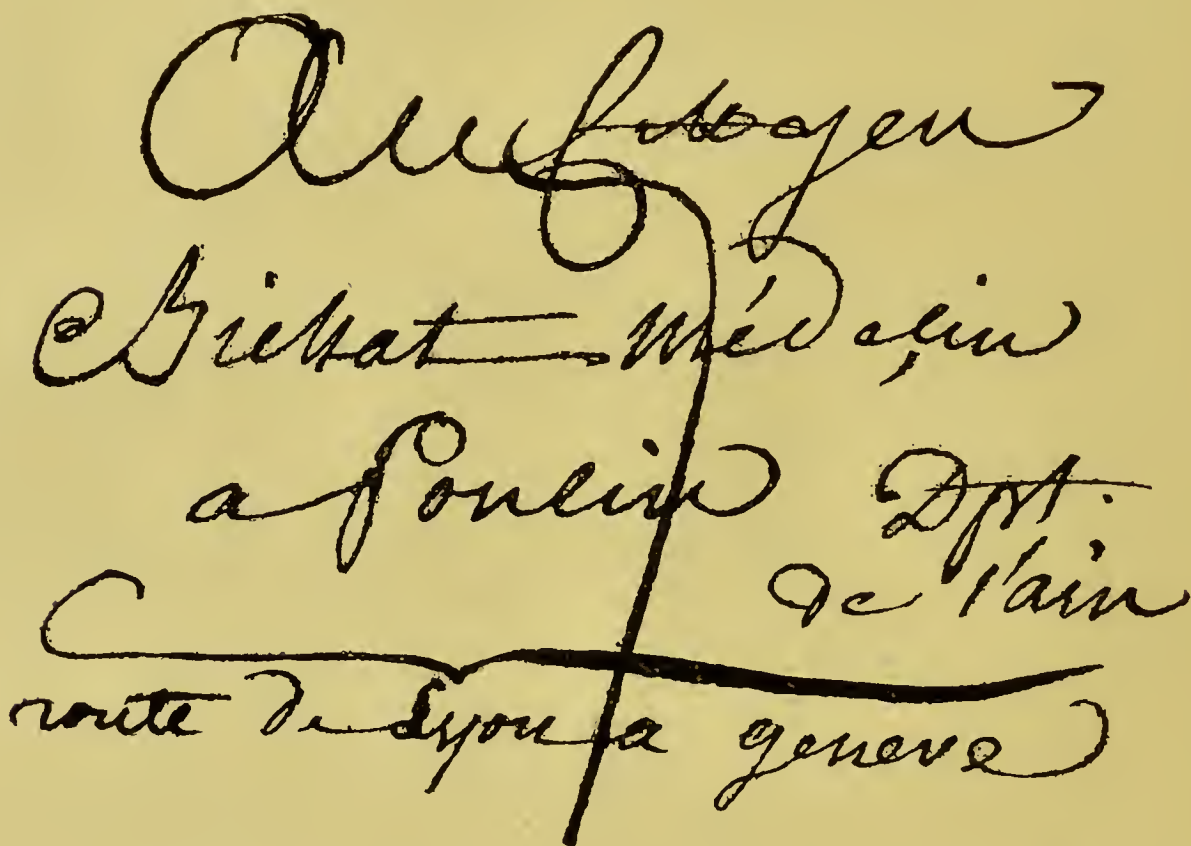 Au Citoyen
Bichat médecin
a Poncin Dpt.
de l'ain
route de Lyon a geneve